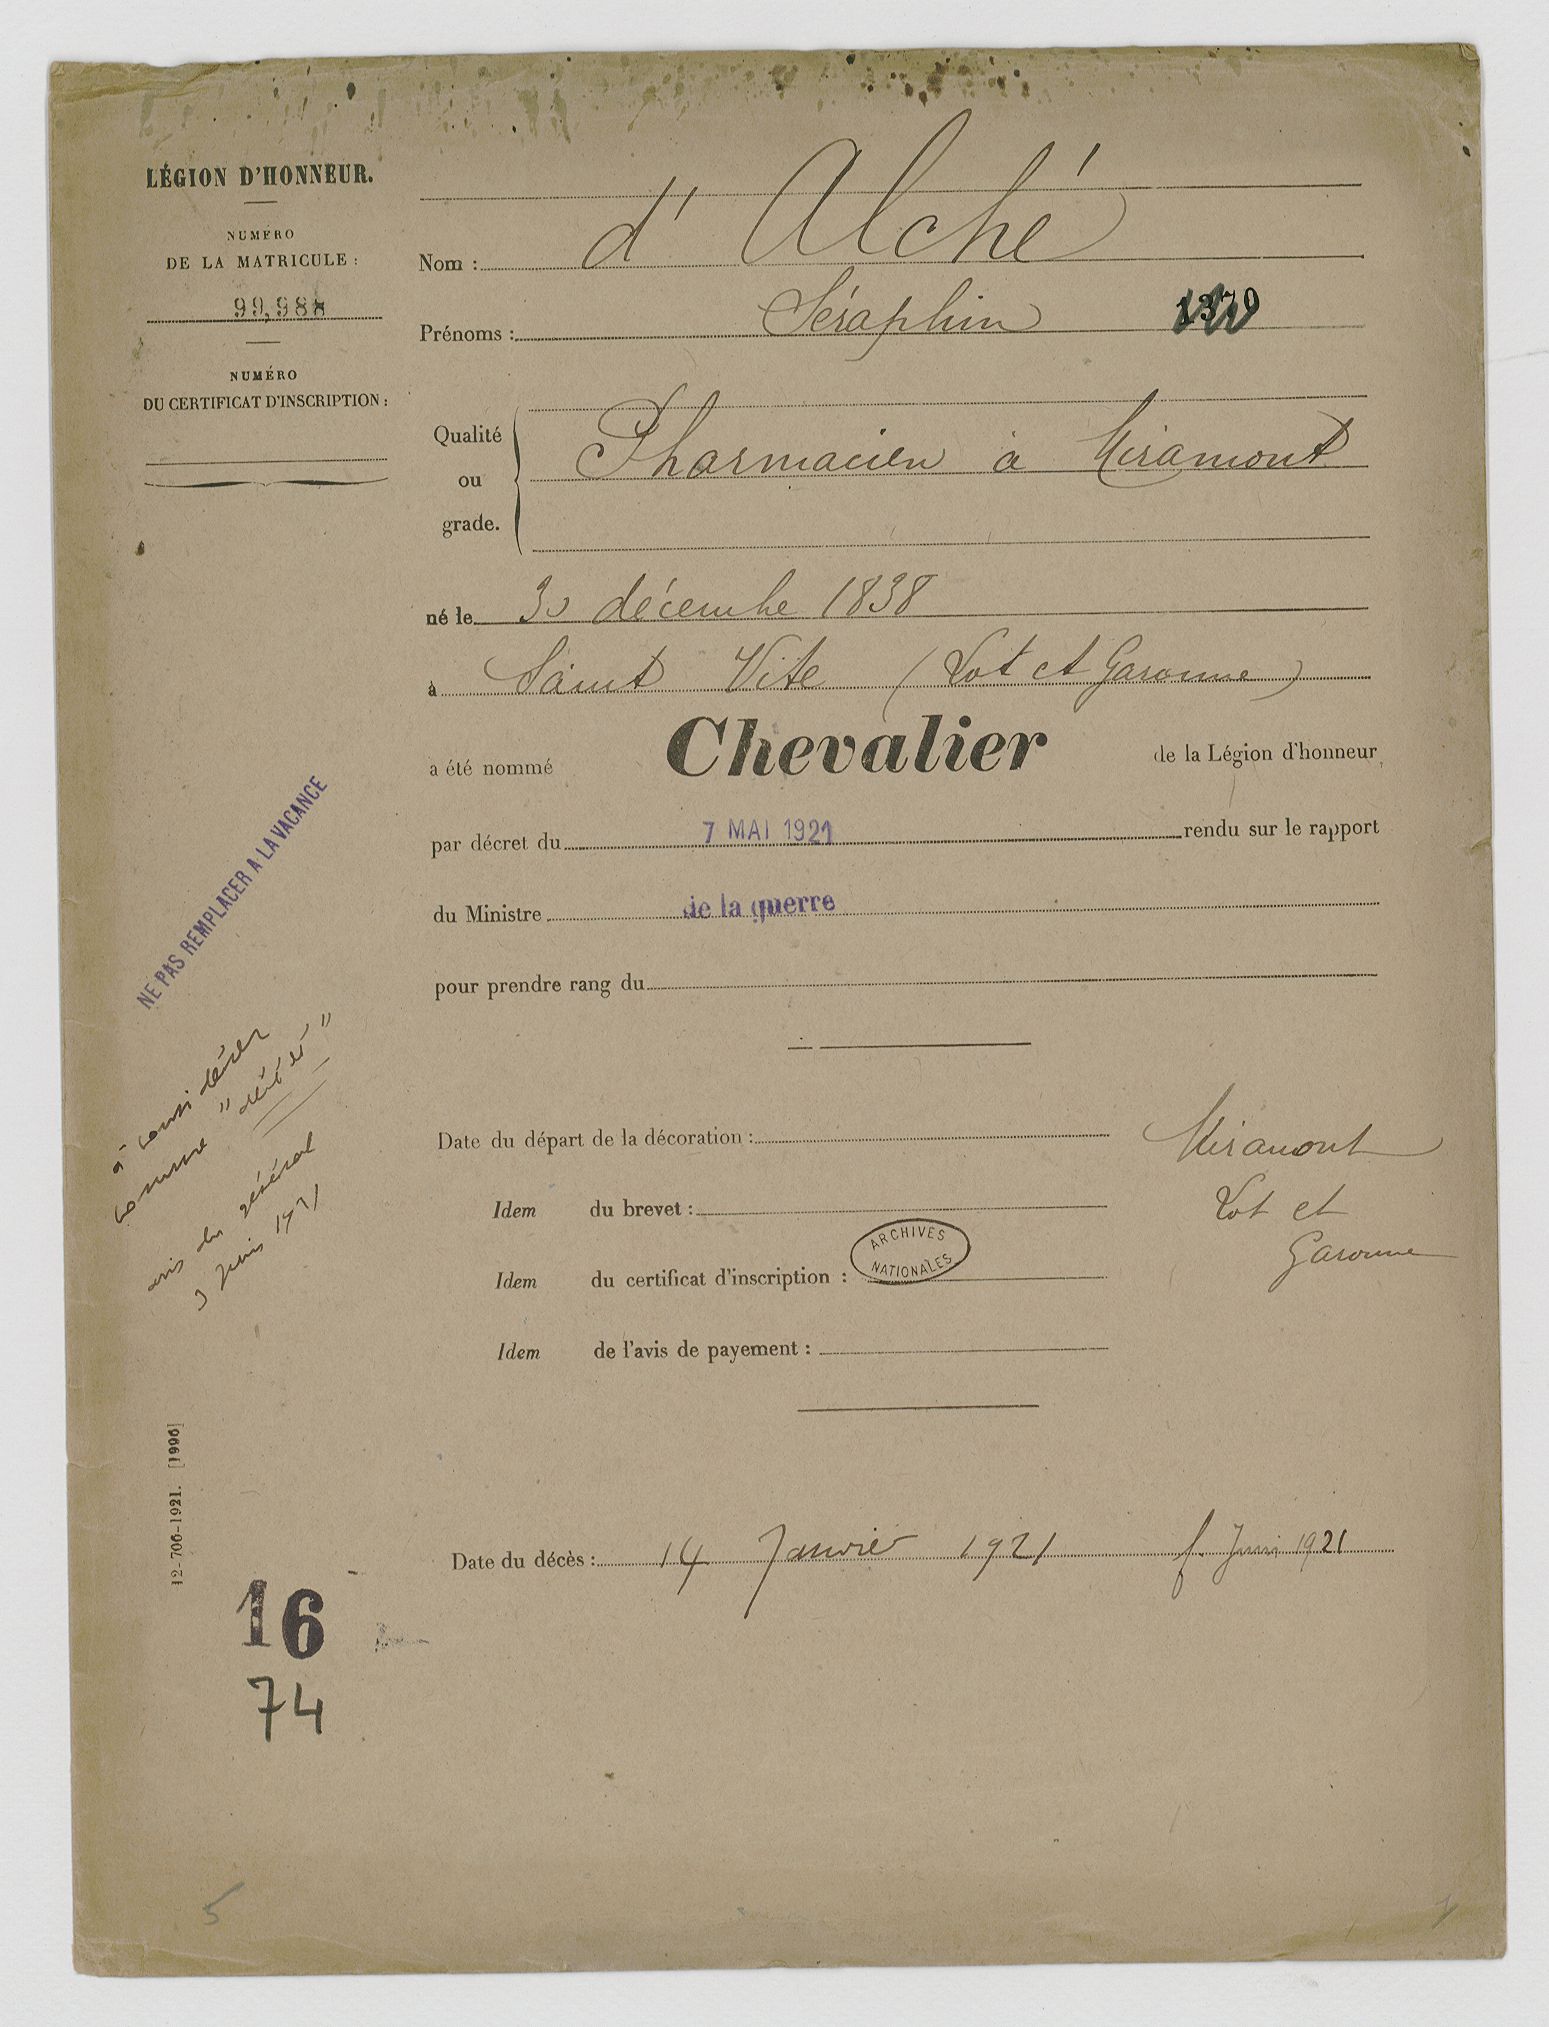 LÉGION D'HONNEUR.
NUMÉRO
DE LA MATRICULE :
99,988
NUMÉRO
DU CERTIFICAT D'INSCRIPTION :
Nom : d'Alché
Prénoms : Séraphin 1370
Qualité
ou
grade.
Pharmacien à Miramont
né le 30 décembre 1838
à Saint Vite (Lot et Garonne)
a été nommé Chevalier de la Légion d'honneur,
par décret du 7 MAI 1921 rendu sur le rapport
du Ministre de la guerre
pour prendre rang du
NE PAS REMPLACER A LA VACANCE
à considérer
comme "décédé"
avis du général
3 Juin 1921
Date du départ de la décoration :
Idem du brevet :
Idem du certificat d'inscription :
Idem de l'avis de payement :
Miramont
Lot et
Garonne
ARCHIVES
NATIONALES
Date du décès : 14 Janvier 1921 f. Juin 1921
12-706-1921. [1996]
16
74
5
1